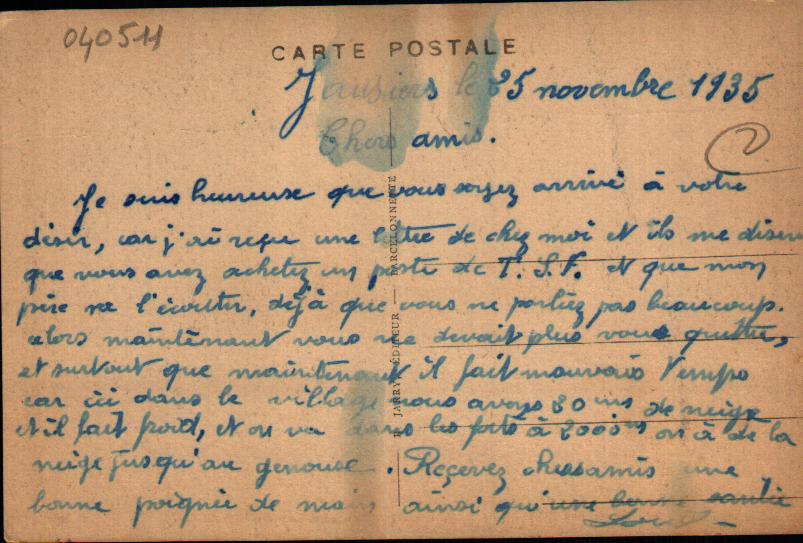 040511
CARTE POSTALE
Jausiers le 25 novembre 1935
Chers amis.
2
Je suis heureuse que vous soyez arrivé à votre
désir, car j'ai reçu une lettre de chez moi et ils me disent
que vous avez achetez un poste de T. S. F. et que mon
père va l'écouter, déjà que vous ne sortiez pas beaucoup.
alors maintenant vous ne devait plus vous quitter,
et surtout que maintenant il fait mauvais temps
car ici dans le village nous avons 80 cms de neige
et il fait froid, et on va dans les forts à 2000 ms on à de la
neige jusqu'au genoux. Reçevez chers amis une
bonne poignée de main ainsi qu'une bonne santée
JARRY ÉDITEUR — BARCELONNETTE